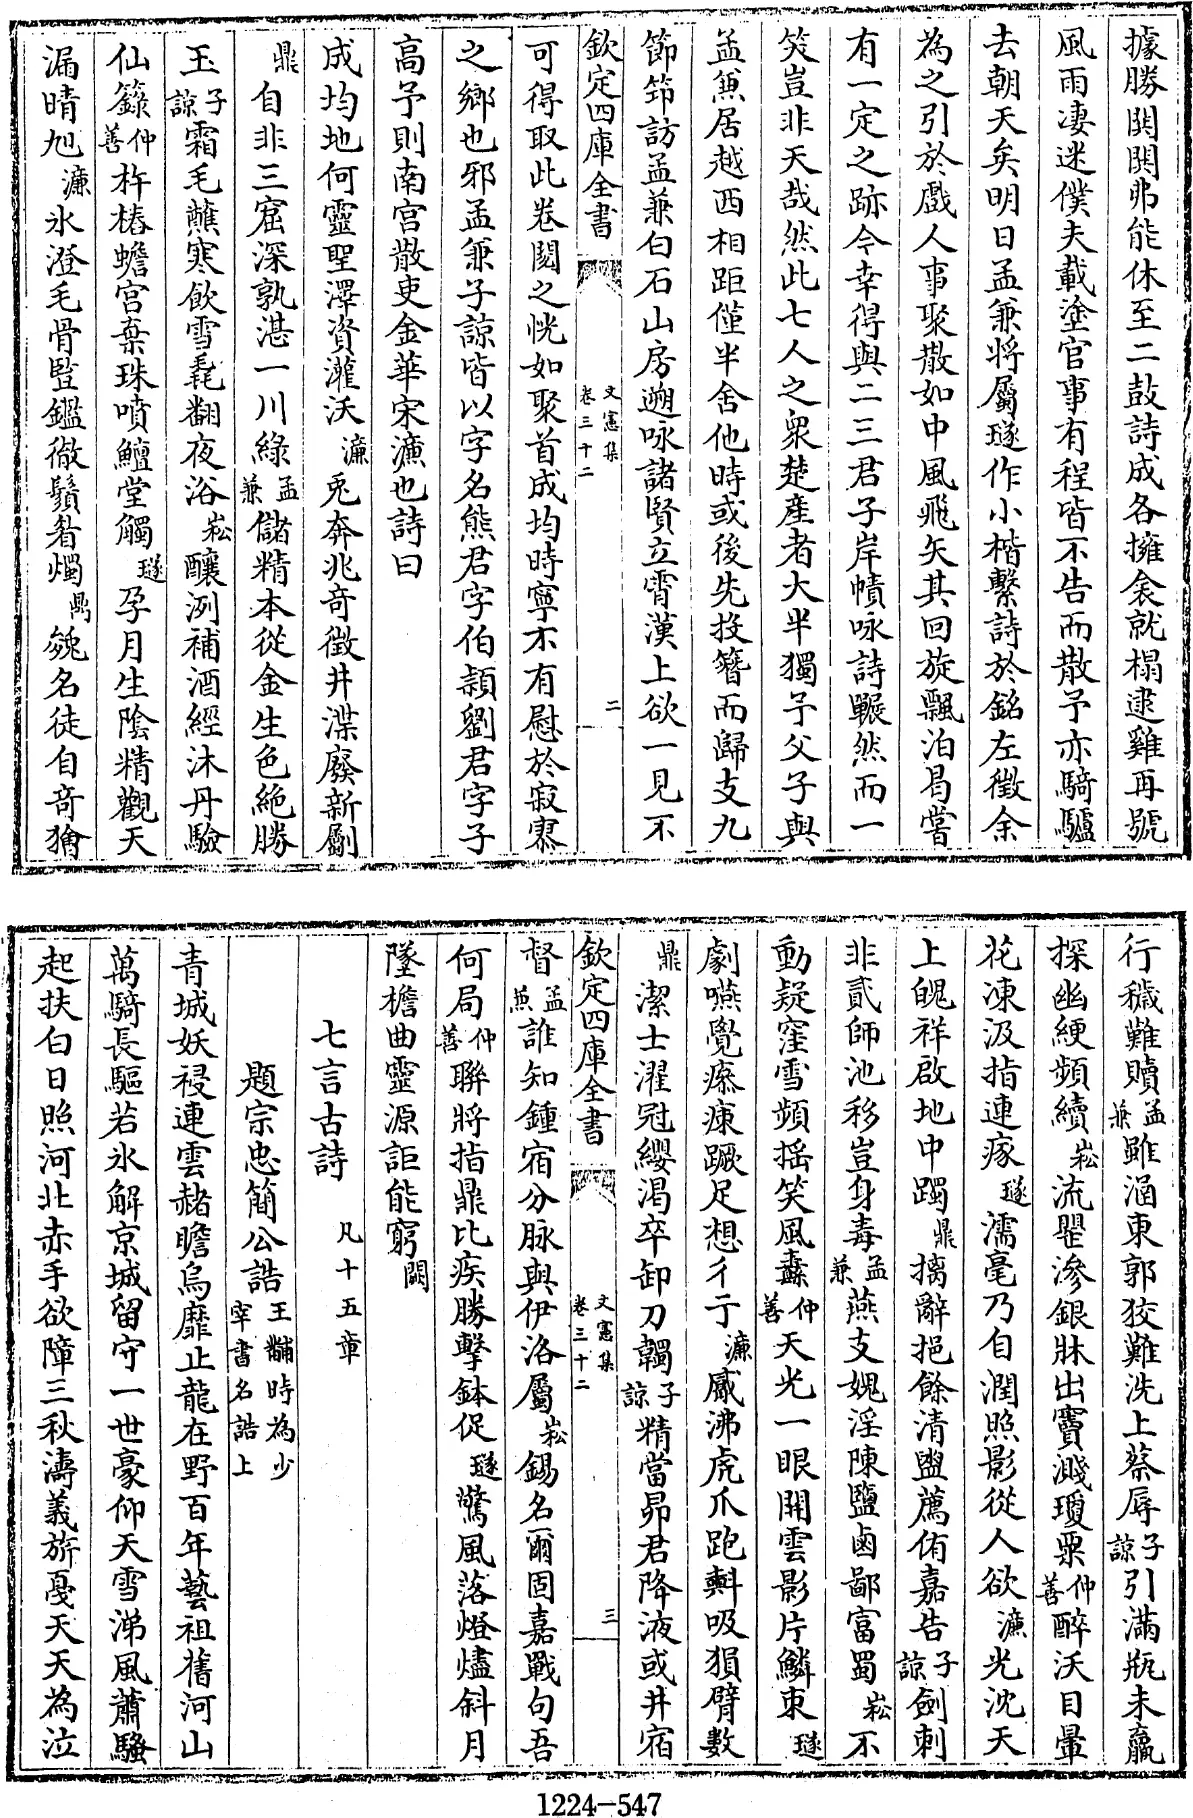 據勝闋闋弗能休至二鼓詩成各擁衾就榻逮雞再號
風雨凄迷僕夫載塗官事有程皆不告而散予亦騎驢
去朝天矣明日孟兼將屬璲作小楷繫詩於銘左徵余
為之引於戲人事聚散如中風飛矢其回旋飄泊曷嘗
有一定之跡今幸得與二三君子岸幘咏詩冁然而一
笑豈非天哉然此七人之衆楚産者大半獨予父子與
孟兼居越西相距僅半舍他時或後先投簪而歸支九
節筇訪孟兼白石山房遡咏諸賢立霄漢上欲一見不
欽定四庫全書 文憲集 卷三十二 二
可得取此卷閲之恍如聚首成均時寧不有慰於寂寞
之鄉也邪孟兼子諒皆以字名熊君字伯頴劉君字子
高予則南宫散吏金華宋濂也詩曰
成均地何靈聖澤資灌沃濂兎奔兆竒徴井渫廢新劚
鼎自非三窟深孰湛一川綠孟兼儲精本從金生色絶勝
玉子諒霜毛蘸寒飲雪毳翻夜浴崧釀洌補酒經沐丹驗
仙籙仲善杵樁蟾宫棄珠噴鱣堂觸璲孕月生陰精觀天
漏晴旭濂氷澄毛骨監鑑徹鬚眉燭鼎㕙名徒自竒㺟
行穢難贖孟兼雖涵東郭狡難洗上蔡辱子諒引滿瓶未羸
探幽綆頻續崧流瞾滲銀牀出竇濺瓊粟仲善醉沃目暈
花凍汲指連瘃璲濡毫乃自潤照影從人欲濂光沈天
上魄祥啟地中躅鼎摛辭挹餘清盥薦侑嘉告子諒劍刺
非貳師池移豈身毒孟兼燕支媿淫陳鹽鹵鄙富蜀崧不
動疑窪雪頻揺笑風纛仲善天光一眼開雲影片鱗束璲
劇嚥覺瘵痩蹶足想彳亍濂觱沸虎爪跑㪺吸狽臂數
鼎潔士濯冠纓渇卒卸刀韣子諒精當昴君降液或井宿
欽定四庫全書 文憲集 卷三十二 三
督孟兼誰知鍾宿分脉與伊洛屬崧錫名爾固嘉戰句吾
何局仲善聯將指鼎比疾勝擊鉢促璲驚風落燈燼斜月
墜檐曲靈源詎能窮闕
七言古詩 凡十五章
題宗忠簡公誥王黼時為少宰書名誥上
青城妖祲連雲赭瞻烏靡止龍在野百年藝祖舊河山
萬騎長驅若氷解京城留守一世豪仰天雪涕風蕭騷
起扶白日照河北赤手欲障三秋濤義旂戞天天為泣
1224-547